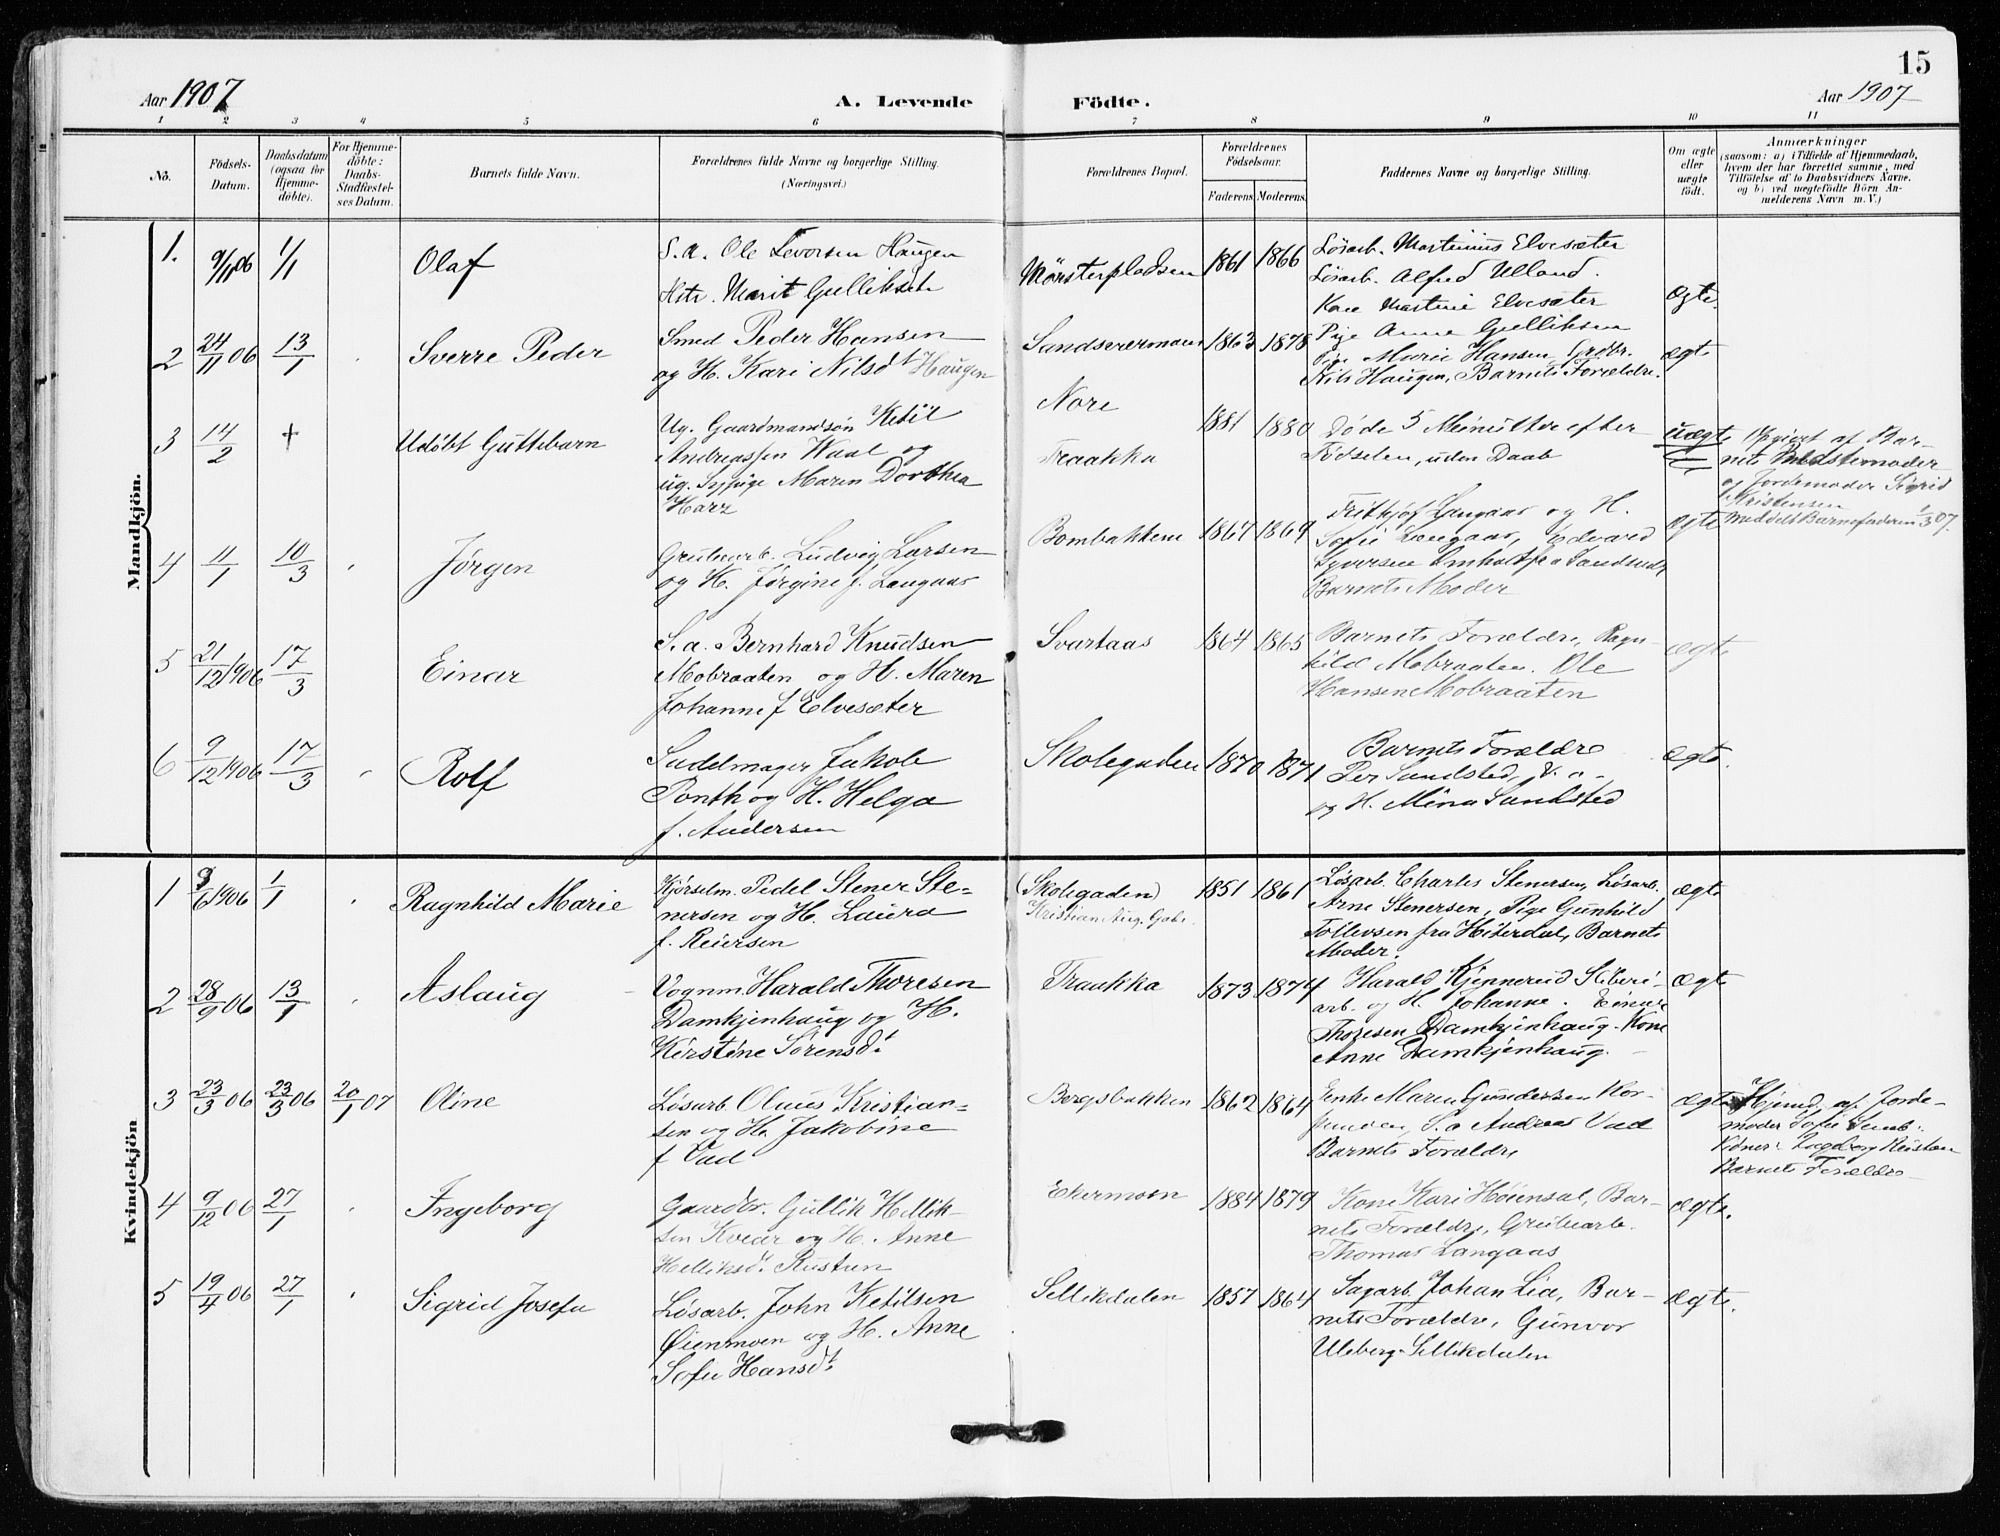 15
Aar 1907
A. Levende Födte.
Aar 1907
1 2 3 4 5 6 7 8 9 10 11
No.
Födsels-
Datum.
Daabsdatum
(ogsaa for
Hjemme-
döbte).
For Hjemme-
döbte:
Daabs-
Stadfæstel-
ses Datum.
Barnets fulde Navn.
Forældrenes fulde Navne og borgerlige Stilling.
(Næringsvei.)
Forældrenes Bopæl.
Forældrenes
Födselsaar.
Faderens. Moderens.
Faddernes Navne og borgerlige Stilling.
Om ægte
eller
uægte
födt.
Anmærkninger
(saasom: a) i Tilfælde af Hjemmedaab,
hvem der har forrettet samme, med
Tilföielse af to Daabsvidners Navne,
og b) ved uægtefödte Börn An-
melderens Navn m. V.)
Mandkjön.
1. 9/11 06 1/1 Olaf
S.a. Ole Levorsen Haugen
Marit Gulliksdt
1861 1866
Løsarb. Martinius Elvesæter
Løsarb. Alfred Ulland.
Kone Martine Elvesæter
Ægte.
2 24/11 06 13/1 Sverre Peder
Smed Peder Hansen
og H. Kari Nilsdt Haugen
Sandsværmoen 1863 1878
Pige Anne Gulliksen
Pige Marie Hansen, Grdbr.
Nils Haugen, Barnets Forældre.
ægte
3 14/2 + Udøbt Guttebarn
Ug. Gaardmandsøn Ketil
Andreassen Waal og
ug. Sypige Maren Dorthea
Harz
Nore
Traakka
1881 1880
Døde 5 Minutter efter
Fødselen, uden Daab
uægte
Opgivet af Bar-
nets Bedstemoder
og Jordemoder Sigrid
Kristensen
Meddelt Barnefaderen 1/3 07.
4 4/1 10/3 Jørgen
Grubearb. Ludvig Larsen
og H. Jørgine f. Langaas
Bombakkene 1867 1869
Frithjof Langaas og H.
Sofie Langaas, Edvard
Syversen
Barnets Moder
ægte
5 21/12 1906 17/3 Einar
S.a. Bernhard Knudsen
Mobraaten og H. Maren
Johanne f Elvesæter
Svartaas 1864 1865
Barnets Forældre, Ragn-
hild Mobraaten. Ole
Hansen Mobraaten
ægte
6 9/12 1906 17/3 Rolf
Sadelmager Jakob
Ponth og H. Helga
f. Andersen
Skolegaden 1870 1871
Barnets Forældre
Per Sandsted,
og H. Mina Sandsted
ægte.
Kvindekjön
1 9/6 1906 1/1 Ragnhild Marie
Kjørselm. Pedel Stener Ste-
nersen og H. Laura
f. Reiersen
(Skolegaden)
Kristian Aug. Gade.
1851 1861
Løsarb. Charles Stenersen, Løsarb.
Arne Stenersen, Pige Gunhild
Tollevsen fra Hiterdal, Barnets
Moder.
ægte
2 28/9 06 13/1 Aslaug
Vognm. Harald Thoresen
Damkjenhaug og H.
Kirstine Sørensdt
Traakka 1873 1874
Harald Kjennerud Sliberi-
arb. og H. Johanne. Einar
Thoresen Damkjenhaug. Kone
Anne Damkjenhaug.
ægte
3 23/3 06 23/3 06 20/1 07 Oline
Løsarb. Olaus Kristian-
sen og H. Jakobine
f Vad
Bergsbakken 1862 1864
Enke Maren Gundersen
S.a Andreas Vad
Barnets Forældre
ægte
Hjemd. af Jorde-
moder Sofie
Vidner: Ingeborg Kristian
Barnets Forældre
4 9/12 06 27/1 Ingeborg
Gaardbr. Gullik Hellik-
sen Kvear og H. Anne
Helliksdt Rustun
Ekermoen 1884 1879
Kone Kari Høiensal, Bar-
nets Forældre, Grubearb.
Thomas Langaas
ægte.
5 19/4 06 27/1 Sigrid Josefa
Løsarb. John Ketilsen
Øienmoen og H. Anne
Sofie Hansdt
Sellikdalen 1857 1864
Sagarb. Johan Lia, Bar-
nets Forældre, Gunvor
Uleberg Sellikdalen
ægte.